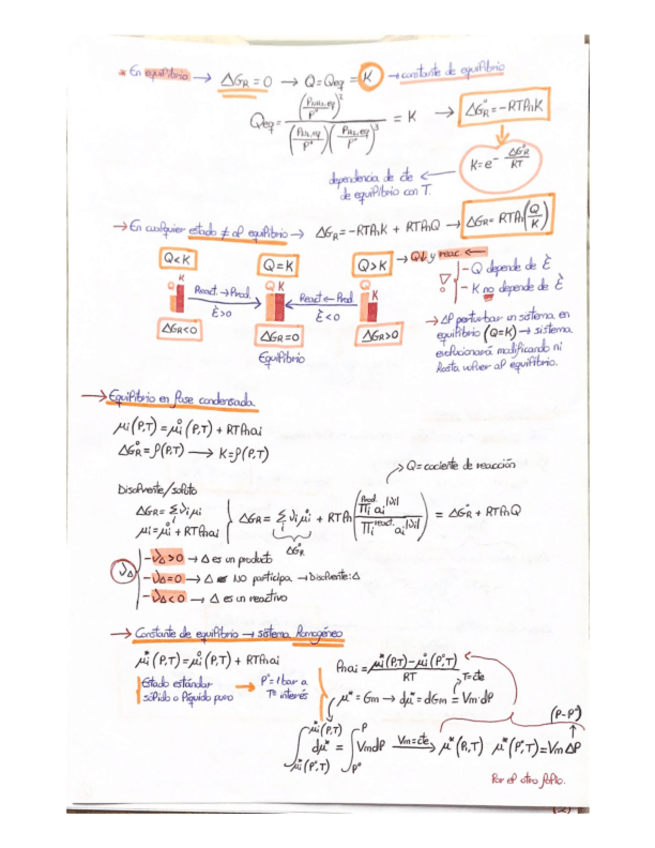 * En equilibrio → ΔG_R = 0 → Q = Q_eq = K → constante de equilibrio
Q_eq = (P_NH3,eq/P°)² / (P_N2,eq/P°)(P_H2,eq/P°)³ = K → ΔG°_R = -RTlnK
K = e^- ΔG°_R/RT
dependencia de cte ←
de equilibrio con T.
→ En cualquier estado ≠ al equilibrio → ΔG_R = -RTlnK + RTlnQ → ΔG_R = RTln(Q/K)
Q<K Q=K Q>K → Q↓ y reac ←
Q K Q K Q K
React → Prod. React ← Prod.
ξ>0 ξ<0
ΔG_R<0 ΔG_R=0 ΔG_R>0
Equilibrio
- Q depende de ξ
- K no depende de ξ
→ Al perturbar un sistema en
equilibrio (Q=K) → sistema
evolucionará modificando ni
hasta volver al equilibrio.
→ Equilibrio en fase condensada
μi(P,T) = μi°(P,T) + RTlnai
ΔG°_R = f(P,T) → K = f(P,T)
→ Q = cociente de reacción
Disolvente/soluto
ΔG_R = Σi νi μi
μi = μi° + RTlnai
ΔG_R = Σi νi μi° + RTln(Πi prod. ai^|νi| / Πi react. ai^|νi|) = ΔG°_R + RTlnQ
ΔG°_R
ν_A
- ν_A>0 → A es un producto
- ν_A=0 → A NO participa → Disolvente: A
- ν_A<0 → A es un reactivo
→ Constante de equilibrio → sistema homogéneo
μi*(P,T) = μi°(P,T) + RTlnai
Estado estándar
sólido o líquido puro
→ P° = 1 bar a
Tª interés
lnai = μi*(P,T) - μi°(P°,T) / RT
T = cte
μ* = Gm → dμ* = dGm = Vm·dP
(P-P°)
∫ μi*(P°,T) μi*(P,T) dμ* = ∫ P° P VmdP Vm=cte → μ*(P,T) μ*(P°,T) = VmΔP
Por el otro folio.